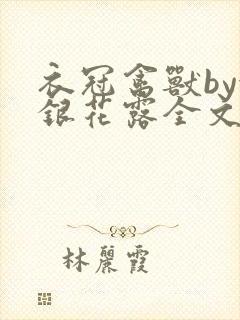 衣冠禽獸by
銀花露全文
林麗霞